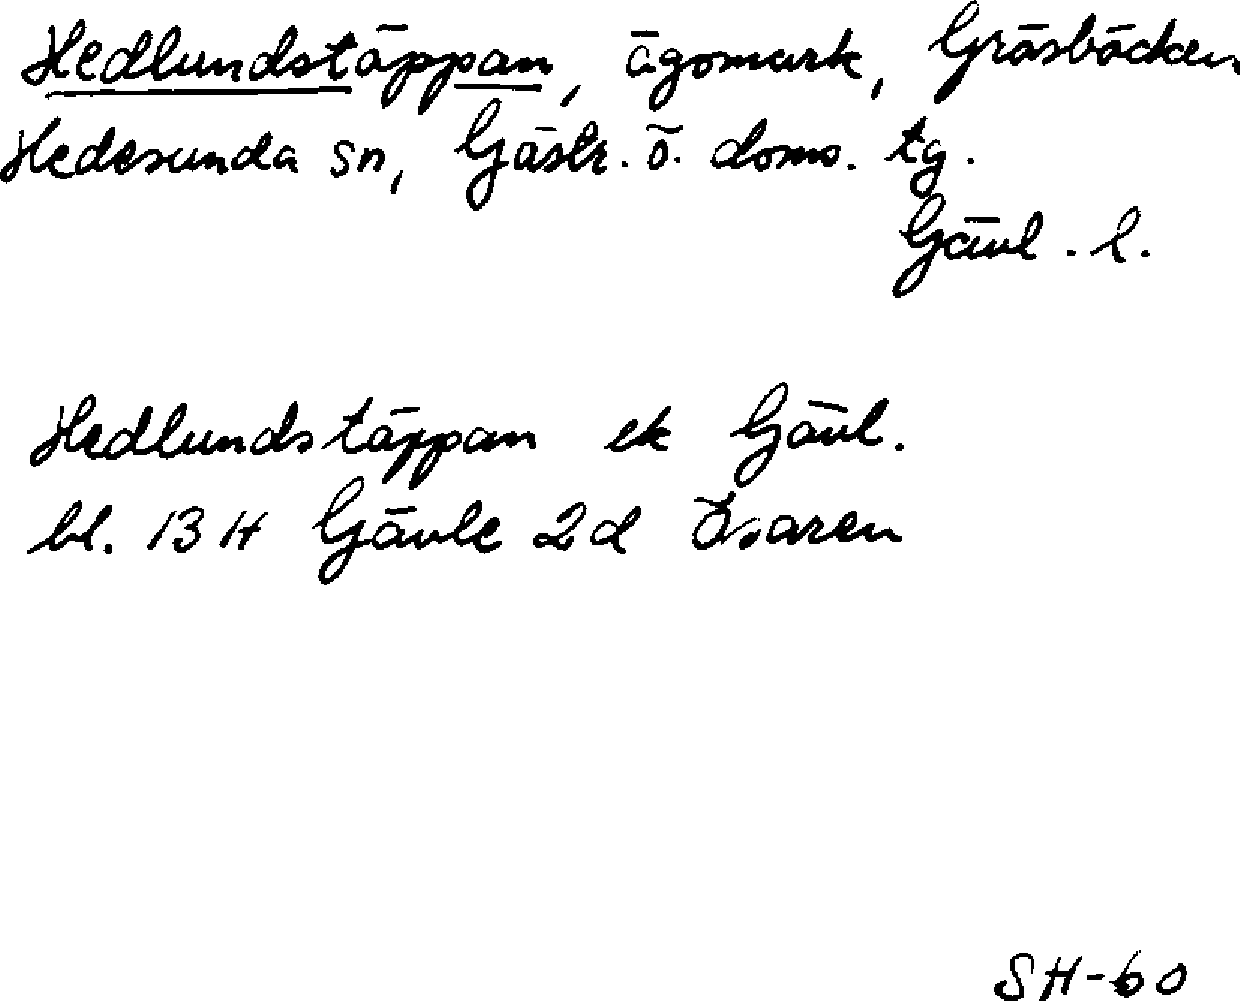 Hedlundstäppan, ägomark, Gräsbäcken
Hedesunda sn, Gästr. ö. doms. tg.
Gävl. l.
Hedlundstäppan ek Gävl.
bl. 13 H Gävle 2d Ösaren
SH-60